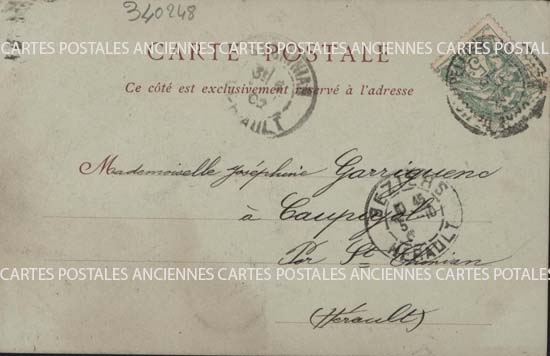 340248
CARTES POSTALES ANCIENNES CARTES POSTALES ANCIENNES CARTES POTALES ANCIENNES
CARTE POSTALE
Ce côté est exclusivement réservé à l'adresse
Mademoiselle Joséphine Garriguenc
à
BEZIERS
HERAULT
Par St Chinian
CARTES POSTALES ANCIENNES CARTES POSTALES ANCIENNES CARTES POTALES ANCIENNES
(Hérault)